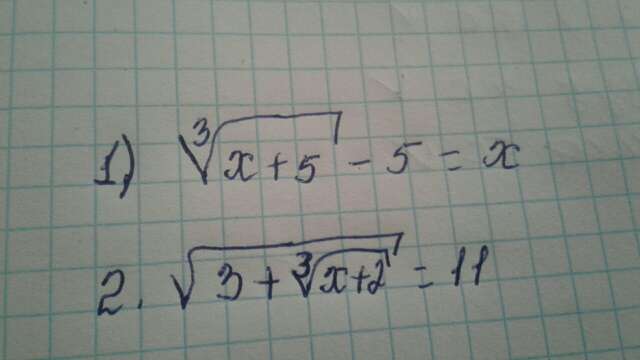 1) ∛(x+5) - 5 = x
2. √(3 + ∛(x+2)) = 11